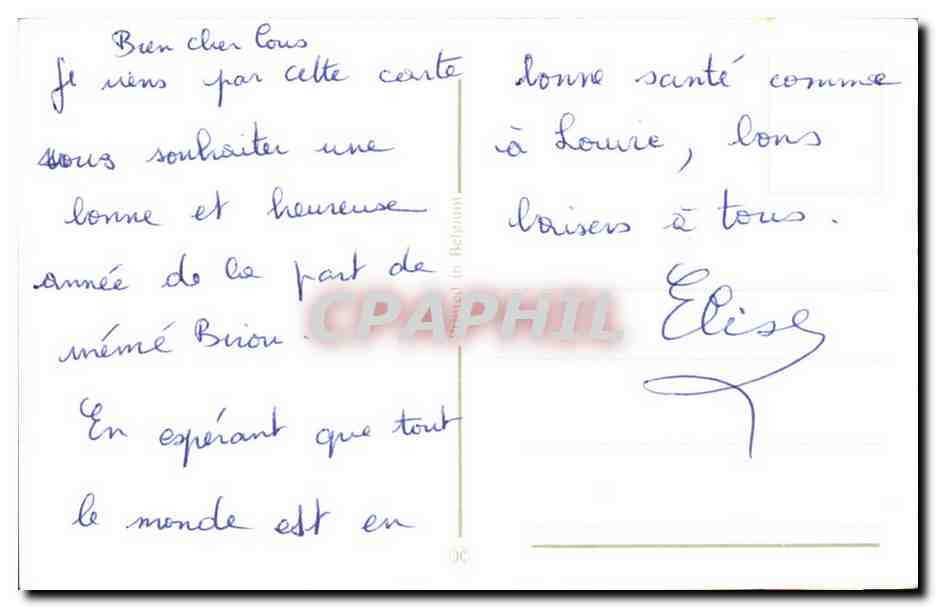 Bien cher tous
Je viens par cette carte
vous souhaiter une
bonne et heureuse
année de la part de
mémé Birou.
En espérant que tout
le monde est en
bonne santé comme
à Louvie, bons
baisers à tous.
Elise
Printed in Belgium
CPAPHIL